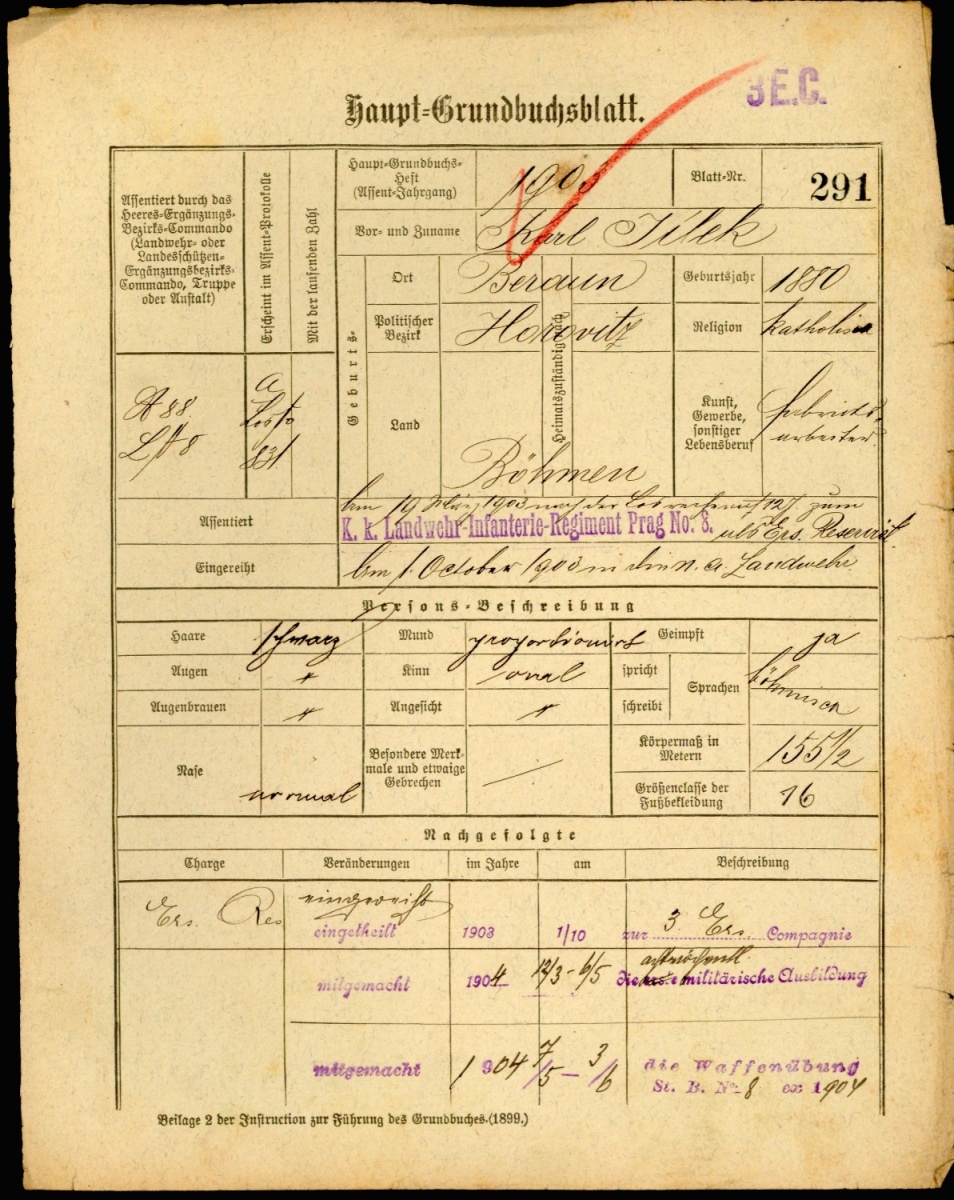 3 E.C.
Haupt-Grundbuchsblatt.
Assentiert durch das
Heeres-Ergänzungs-
Bezirks-Commando
(Landwehr- oder
Landesschützen-
Ergänzungsbezirks-
Commando, Truppe
oder Anstalt)
Erscheint im Assent-Protokolle
Mit der laufenden Zahl
Haupt-Grundbuchs-
Heft
(Assent-Jahrgang)
1903
Blatt-Nr.
291
Vor- und Zuname
Karl Jílek
Geburts-
Ort
Beraun
Geburtsjahr
1880
Politischer
Bezirk
Hořovitz
Religion
katholisch
Heimatszuständig nach
Land
Böhmen
Kunst,
Gewerbe,
sonstiger
Lebensberuf
Fabriks-
arbeiter
A 88.
831
Assentiert
am 19 März 1903 auf 12 J. zum
K. k. Landwehr-Infanterie-Regiment Prag No. 8.
als Ers. Reservist.
Eingereiht
am 1. October 1903 in die n. a. Landwehr.
Persons-Beschreibung
Haare
schwarz
Mund
proportioniert
Geimpft
ja
Augen
"
Kinn
oval
spricht
schreibt
Sprachen
böhmisch
Augenbrauen
"
Angesicht
"
Nase
normal
Besondere Merk-
male und etwaige
Gebrechen
Körpermaß in
Metern
155 1/2
Größenclasse der
Fußbekleidung
16
Nachgefolgte
Charge
Veränderungen
im Jahre
am
Beschreibung
Ers. Res
eingereiht
eingetheilt 1903 1/10 zur 3 Ers. Compagnie
achtwöchentl.
mitgemacht 1904 12/3 - 6/5 die militärische Ausbildung
mitgemacht 1904 7/5 - 3/6 die Waffenübung
St. B. No 8 ex 1904
Beilage 2 der Instruction zur Führung des Grundbuches.(1899.)